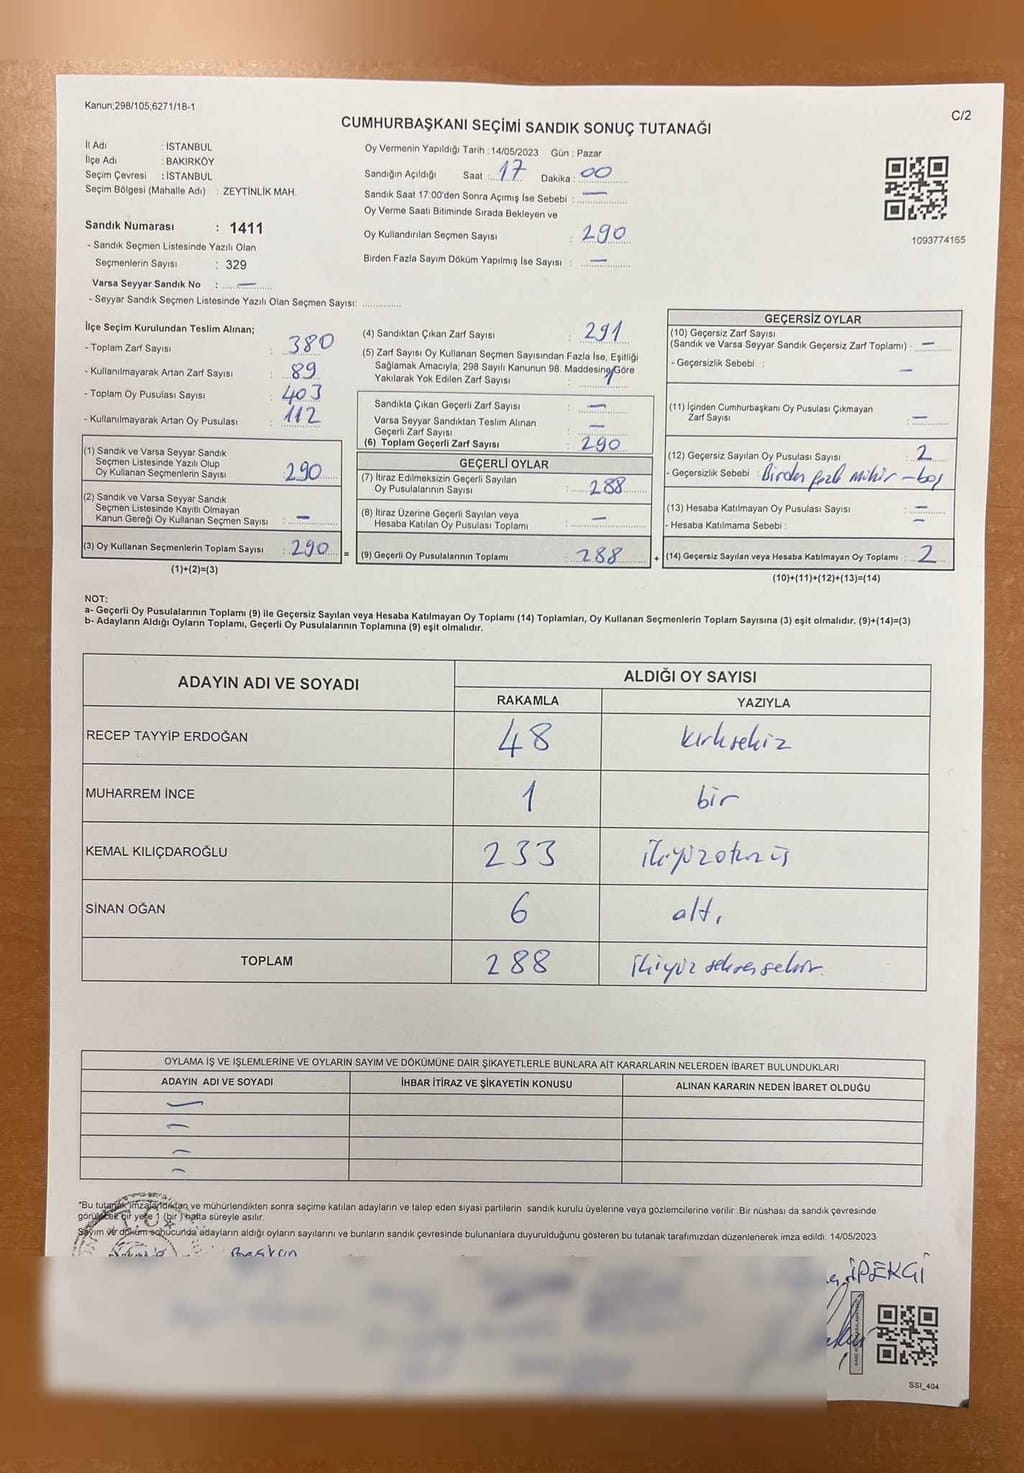 Kanun;298/105,6271/18-1
C/2
CUMHURBAŞKANI SEÇİMİ SANDIK SONUÇ TUTANAĞI
İl Adı : İSTANBUL
İlçe Adı : BAKIRKÖY
Seçim Çevresi : İSTANBUL
Seçim Bölgesi (Mahalle Adı) : ZEYTİNLİK MAH.
Sandık Numarası : 1411
- Sandık Seçmen Listesinde Yazılı Olan
Seçmenlerin Sayısı : 329
Varsa Seyyar Sandık No : —
- Seyyar Sandık Seçmen Listesinde Yazılı Olan Seçmen Sayısı:
Oy Vermenin Yapıldığı Tarih : 14/05/2023 Gün : Pazar
Sandığın Açıldığı Saat : 17 Dakika : 00
Sandık Saat 17:00'den Sonra Açımış İse Sebebi : —
Oy Verme Saati Bitiminde Sırada Bekleyen ve
Oy Kullandırılan Seçmen Sayısı : 290
Birden Fazla Sayım Döküm Yapılmış İse Sayısı : —
1093774165
İlçe Seçim Kurulundan Teslim Alınan;
- Toplam Zarf Sayısı : 380
- Kullanılmayarak Artan Zarf Sayısı : 89
- Toplam Oy Pusulası Sayısı : 403
- Kullanılmayarak Artan Oy Pusulası : 112
(1) Sandık ve Varsa Seyyar Sandık
Seçmen Listesinde Yazılı Olup
Oy Kullanan Seçmenlerin Sayısı : 290
(2) Sandık ve Varsa Seyyar Sandık
Seçmen Listesinde Kayıtlı Olmayan
Kanun Gereği Oy Kullanan Seçmen Sayısı : —
(3) Oy Kullanan Seçmenlerin Toplam Sayısı : 290 =
(1)+(2)=(3)
(4) Sandıktan Çıkan Zarf Sayısı : 291
(5) Zarf Sayısı Oy Kullanan Seçmen Sayısından Fazla İse, Eşitliği
Sağlamak Amacıyla; 298 Sayılı Kanunun 98. Maddesine Göre
Yakılarak Yok Edilen Zarf Sayısı : 1
Sandıkta Çıkan Geçerli Zarf Sayısı : —
Varsa Seyyar Sandıktan Teslim Alınan
Geçerli Zarf Sayısı : —
(6) Toplam Geçerli Zarf Sayısı : 290
GEÇERLİ OYLAR
(7) İtiraz Edilmeksizin Geçerli Sayılan
Oy Pusulalarının Sayısı : 288
(8) İtiraz Üzerine Geçerli Sayılan veya
Hesaba Katılan Oy Pusulası Toplamı : —
(9) Geçerli Oy Pusulalarının Toplamı : 288 +
GEÇERSİZ OYLAR
(10) Geçersiz Zarf Sayısı
(Sandık ve Varsa Seyyar Sandık Geçersiz Zarf Toplamı) : —
- Geçersizlik Sebebi : —
(11) İçinden Cumhurbaşkanı Oy Pusulası Çıkmayan
Zarf Sayısı : —
(12) Geçersiz Sayılan Oy Pusulası Sayısı : 2
- Geçersizlik Sebebi : Birden fazla mühür - boş
(13) Hesaba Katılmayan Oy Pusulası Sayısı : —
- Hesaba Katılmama Sebebi : —
(14) Geçersiz Sayılan veya Hesaba Katılmayan Oy Toplamı : 2
(10)+(11)+(12)+(13)=(14)
NOT:
a- Geçerli Oy Pusulalarının Toplamı (9) ile Geçersiz Sayılan veya Hesaba Katılmayan Oy Toplamı (14) Toplamları, Oy Kullanan Seçmenlerin Toplam Sayısına (3) eşit olmalıdır. (9)+(14)=(3)
b- Adayların Aldığı Oyların Toplamı, Geçerli Oy Pusulalarının Toplamına (9) eşit olmalıdır.
ADAYIN ADI VE SOYADI
ALDIĞI OY SAYISI
RAKAMLA YAZIYLA
RECEP TAYYİP ERDOĞAN 48 kırksekiz
MUHARREM İNCE 1 bir
KEMAL KILIÇDAROĞLU 233 ikiyüzotuzüç
SİNAN OĞAN 6 altı
TOPLAM 288 ikiyüz seksensekiz
OYLAMA İŞ VE İŞLEMLERİNE VE OYLARIN SAYIM VE DÖKÜMÜNE DAİR ŞİKAYETLERLE BUNLARA AİT KARARLARIN NELERDEN İBARET BULUNDUKLARI
ADAYIN ADI VE SOYADI İHBAR İTİRAZ VE ŞİKAYETİN KONUSU ALINAN KARARIN NEDEN İBARET OLDUĞU
—
—
—
—
*Bu tutanak imzalandıktan ve mühürlendikten sonra seçime katılan adayların ve talep eden siyasi partilerin sandık kurulu üyelerine veya gözlemcilerine verilir. Bir nüshası da sandık çevresinde
görülecek bir yere 1 (bir) hafta süreyle asılır.
Sayım ve döküm sonucunda adayların aldığı oyların sayılarını ve bunların sandık çevresinde bulunanlara duyurulduğunu gösteren bu tutanak tarafımızdan düzenlenerek imza edildi. 14/05/2023
T.C.
Başkan
İPEKÇİ
SSI_404